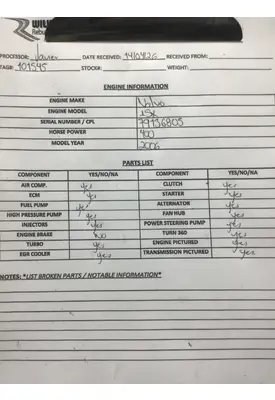 Rebu
PROCESSOR: Javier DATE RECEIVED: 14/04/26 RECEIVED FROM:
TAG#: 101545 STOCK#: WEIGHT:
ENGINE INFORMATION
ENGINE MAKE Volvo
ENGINE MODEL ISX
SERIAL NUMBER / CPL 79136805
HORSE POWER 400
MODEL YEAR 2006
PARTS LIST
COMPONENT YES/NO/NA COMPONENT YES/NO/NA
AIR COMP. yes CLUTCH yes
ECM yes STARTER yes
FUEL PUMP yes ALTERNATOR yes
HIGH PRESSURE PUMP yes FAN HUB yes
INJECTORS yes POWER STEERING PUMP yes
ENGINE BRAKE No TURN 360 yes
TURBO yes ENGINE PICTURED yes
EGR COOLER yes TRANSMISSION PICTURED yes
NOTES: *LIST BROKEN PARTS / NOTABLE INFORMATION*